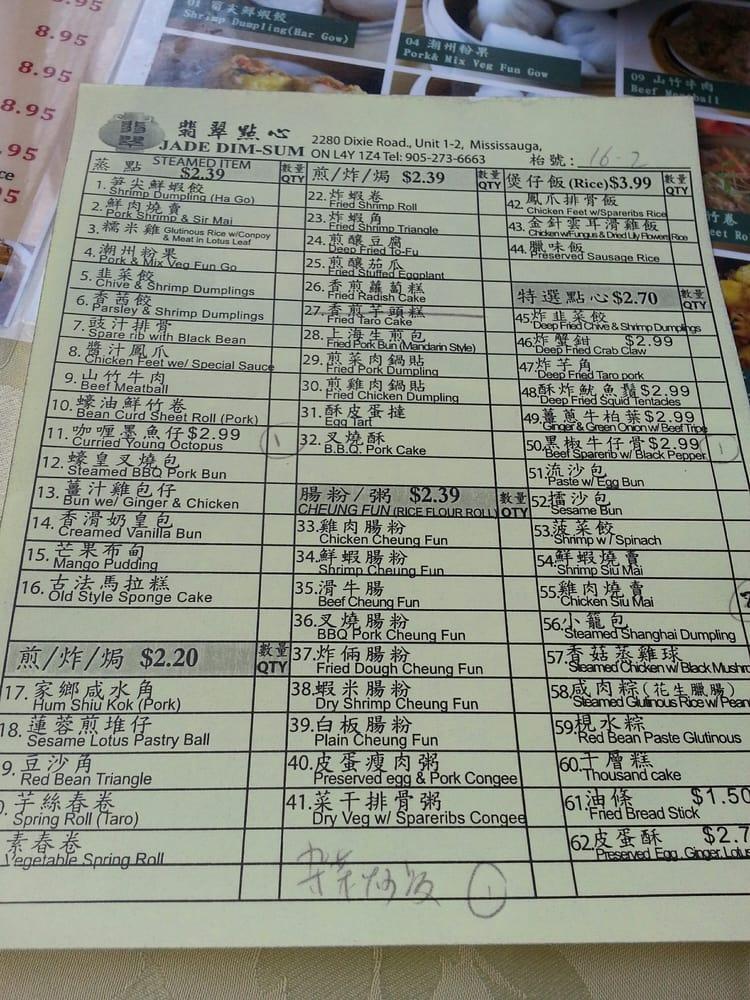 8.95
8.95
8.95
8.95
.95
95
01 筍尖鮮蝦餃
Shrimp Dumpling(Har Gow)
04 潮州粉果
Pork& Mix Veg Fun Gow
09 山竹牛肉
Beef Meatball
翡翠點心
JADE DIM-SUM
2280 Dixie Road., Unit 1-2, Mississauga,
ON L4Y 1Z4 Tel: 905-273-6663
枱號: 16-2
蒸點 STEAMED ITEM
$2.39
數量
QTY
1. 筍尖鮮蝦餃
Shrimp Dumpling (Ha Go)
2. 鮮肉燒賣
Pork Shrimp & Sir Mai
3. 糯米雞 Glutinous Rice w/Conpoy
& Meat in Lotus Leaf
4. 潮州粉果
Pork & Mix Veg Fun Go
5. 韭菜餃
Chive & Shrimp Dumplings
6. 香茜餃
Parsley & Shrimp Dumplings
7. 豉汁排骨
Spare rib with Black Bean
8. 醬汁鳳爪
Chicken Feet w/ Special Sauce
9. 山竹牛肉
Beef Meatball
10. 蠔油鮮竹卷
Bean Curd Sheet Roll (Pork)
11. 咖喱墨魚仔 $2.99
Curried Young Octopus
1
12. 蠔皇叉燒包
Steamed BBQ Pork Bun
13. 薑汁雞包仔
Bun we/ Ginger & Chicken
14. 香滑奶皇包
Creamed Vanilla Bun
15. 芒果布甸
Mango Pudding
16. 古法馬拉糕
Old Style Sponge Cake
煎/炸/焗 $2.20
數量
QTY
17. 家鄉咸水角
Hum Shiu Kok (Pork)
18. 蓮蓉煎堆仔
Sesame Lotus Pastry Ball
9. 豆沙角
Red Bean Triangle
芋絲春卷
Spring Roll (Taro)
素春卷
Vegetable Spring Roll
煎/炸/焗 $2.39
數量
QTY
22. 炸蝦卷
Fried Shrimp Roll
23. 炸蝦角
Fried Shrimp Triangle
24. 煎釀豆腐
Deep Fried To-Fu
25. 煎釀茄瓜
Fried Stuffed Eggplant
26. 香煎蘿蔔糕
Fried Radish Cake
27. 香煎芋頭糕
Fried Taro Cake
28. 上海生煎包
Fried Pork Bun (Mandarin Style)
29. 煎菜肉鍋貼
Fried Pork Dumpling
30. 煎雞肉鍋貼
Fried Chicken Dumpling
31. 酥皮蛋撻
Egg Tart
32. 叉燒酥
B.B.Q. Pork Cake
腸粉/粥 $2.39
CHEUNG FUN (RICE FLOUR ROLL)
數量
QTY
33. 雞肉腸粉
Chicken Cheung Fun
34. 鮮蝦腸粉
Shrimp Cheung Fun
35. 滑牛腸
Beef Cheung Fun
36. 叉燒腸粉
BBQ Pork Cheung Fun
37. 炸倆腸粉
Fried Dough Cheung Fun
38. 蝦米腸粉
Dry Shrimp Cheung Fun
39. 白板腸粉
Plain Cheung Fun
40. 皮蛋瘦肉粥
Preserved egg & Pork Congee
41. 菜干排骨粥
Dry Veg w/ Spareribs Congee
炒飯 1
煲仔飯 (Rice) $3.99
數量
QTY
42. 鳳爪排骨飯
Chicken Feet w/Spareribs Rice
43. 金針雲耳滑雞飯
Chicken w/Fungus & Dried Lily Flowers Rice
44. 臘味飯
Preserved Sausage Rice
特選點心 $2.70
數量
QTY
45. 炸韭菜餃
Deep Fried Chive & Shrimp Dumplings
46. 炸蟹鉗 $2.99
Deep Fried Crab Claw
47. 炸芋角
Deep Fried Taro pork
48. 酥炸魷魚鬚 $2.99
Deep Fried Squid Tentacles
49. 薑蔥牛柏葉 $2.99
Ginger & Green Onion w/ Beef Tripe
50. 黑椒牛仔骨 $2.99
Beef Sparerib w/ Black Pepper
1
51. 流沙包
Paste w/ Egg Bun
52. 擂沙包
Sesame Bun
53. 菠菜餃
Shrimp w / Spinach
54. 鮮蝦燒賣
Shrimp Siu Mai
55. 雞肉燒賣
Chicken Siu Mai
56. 小籠包
Steamed Shanghai Dumpling
57. 香菇蒸雞球
Steamed Chicken w/ Black Mushro
58. 咸肉粽(花生臘腸)
Steamed Glutinous Rice w/ Pean
59. 梘水粽
Red Bean Paste Glutinous
60. 千層糕
Thousand cake
61. 油條 $1.50
Fried Bread Stick
62. 皮蛋酥 $2.7
Preserved Egg, Ginger, Lotus